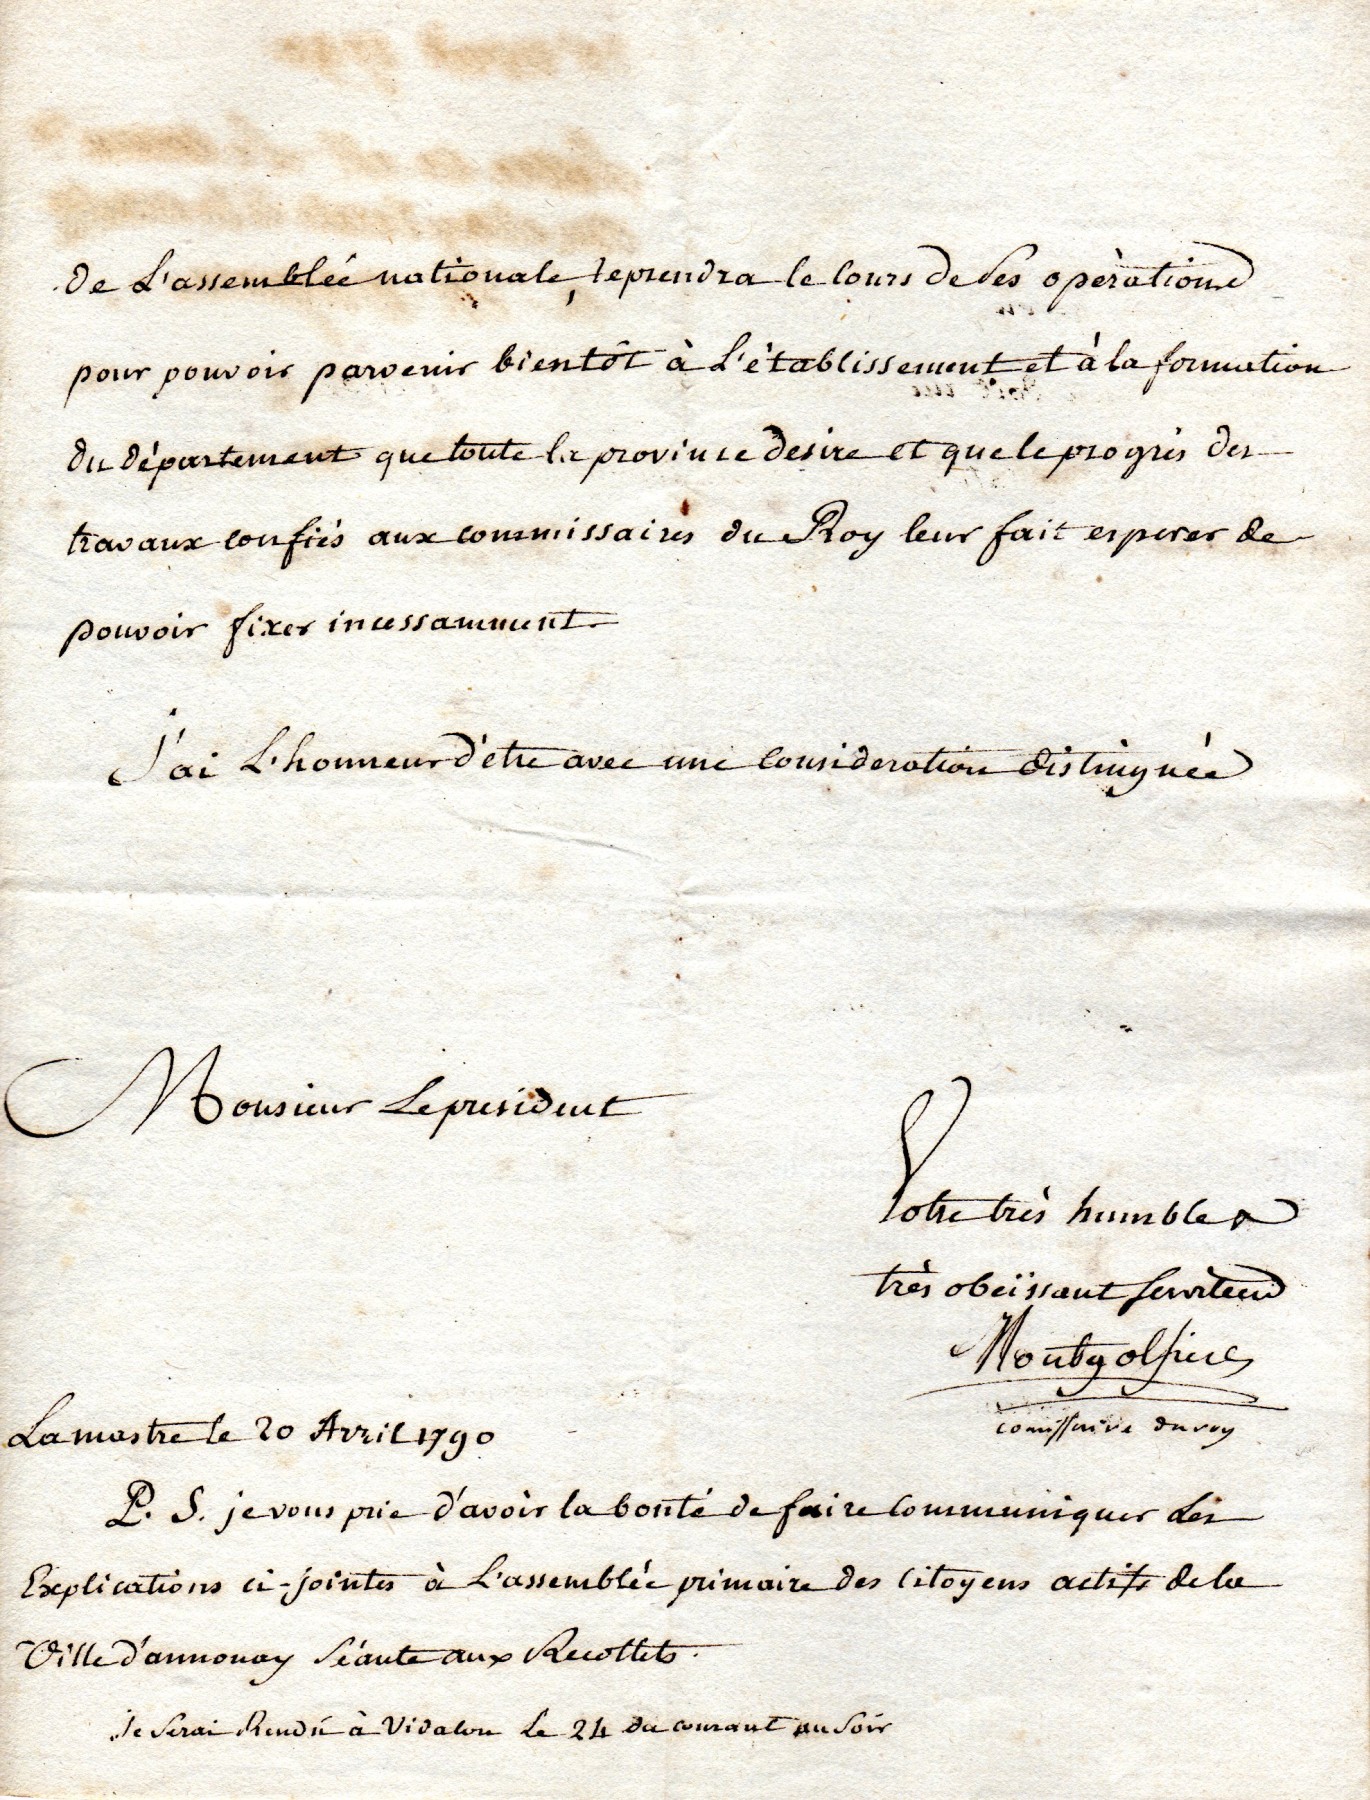 de L'assemblée nationale, reprendra le cours de ses opèrations
pour pouvoir parvenir bientôt à L'établissement et à la formation
du département que toute la province desire et que le progrès des
travaux confiés aux commissaires du Roy leur fait esperer de
pouvoir fixer incessamment.
J'ai L'honneur d'être avec une consideration distinguée
Monsieur Le président
Votre très humble &
très obeïssant serviteur
Montgolfier
comissaire du roy
Lamastre le 20 Avril 1790
P. S. je vous prie d'avoir la bonté de faire communiquer Les
Explications ci-jointes à L'assemblée primaire des citoyens actifs de la
Ville d'annonay séante aux Recollets.
Je serai Rendu à Vidalon Le 24 du courant au soir